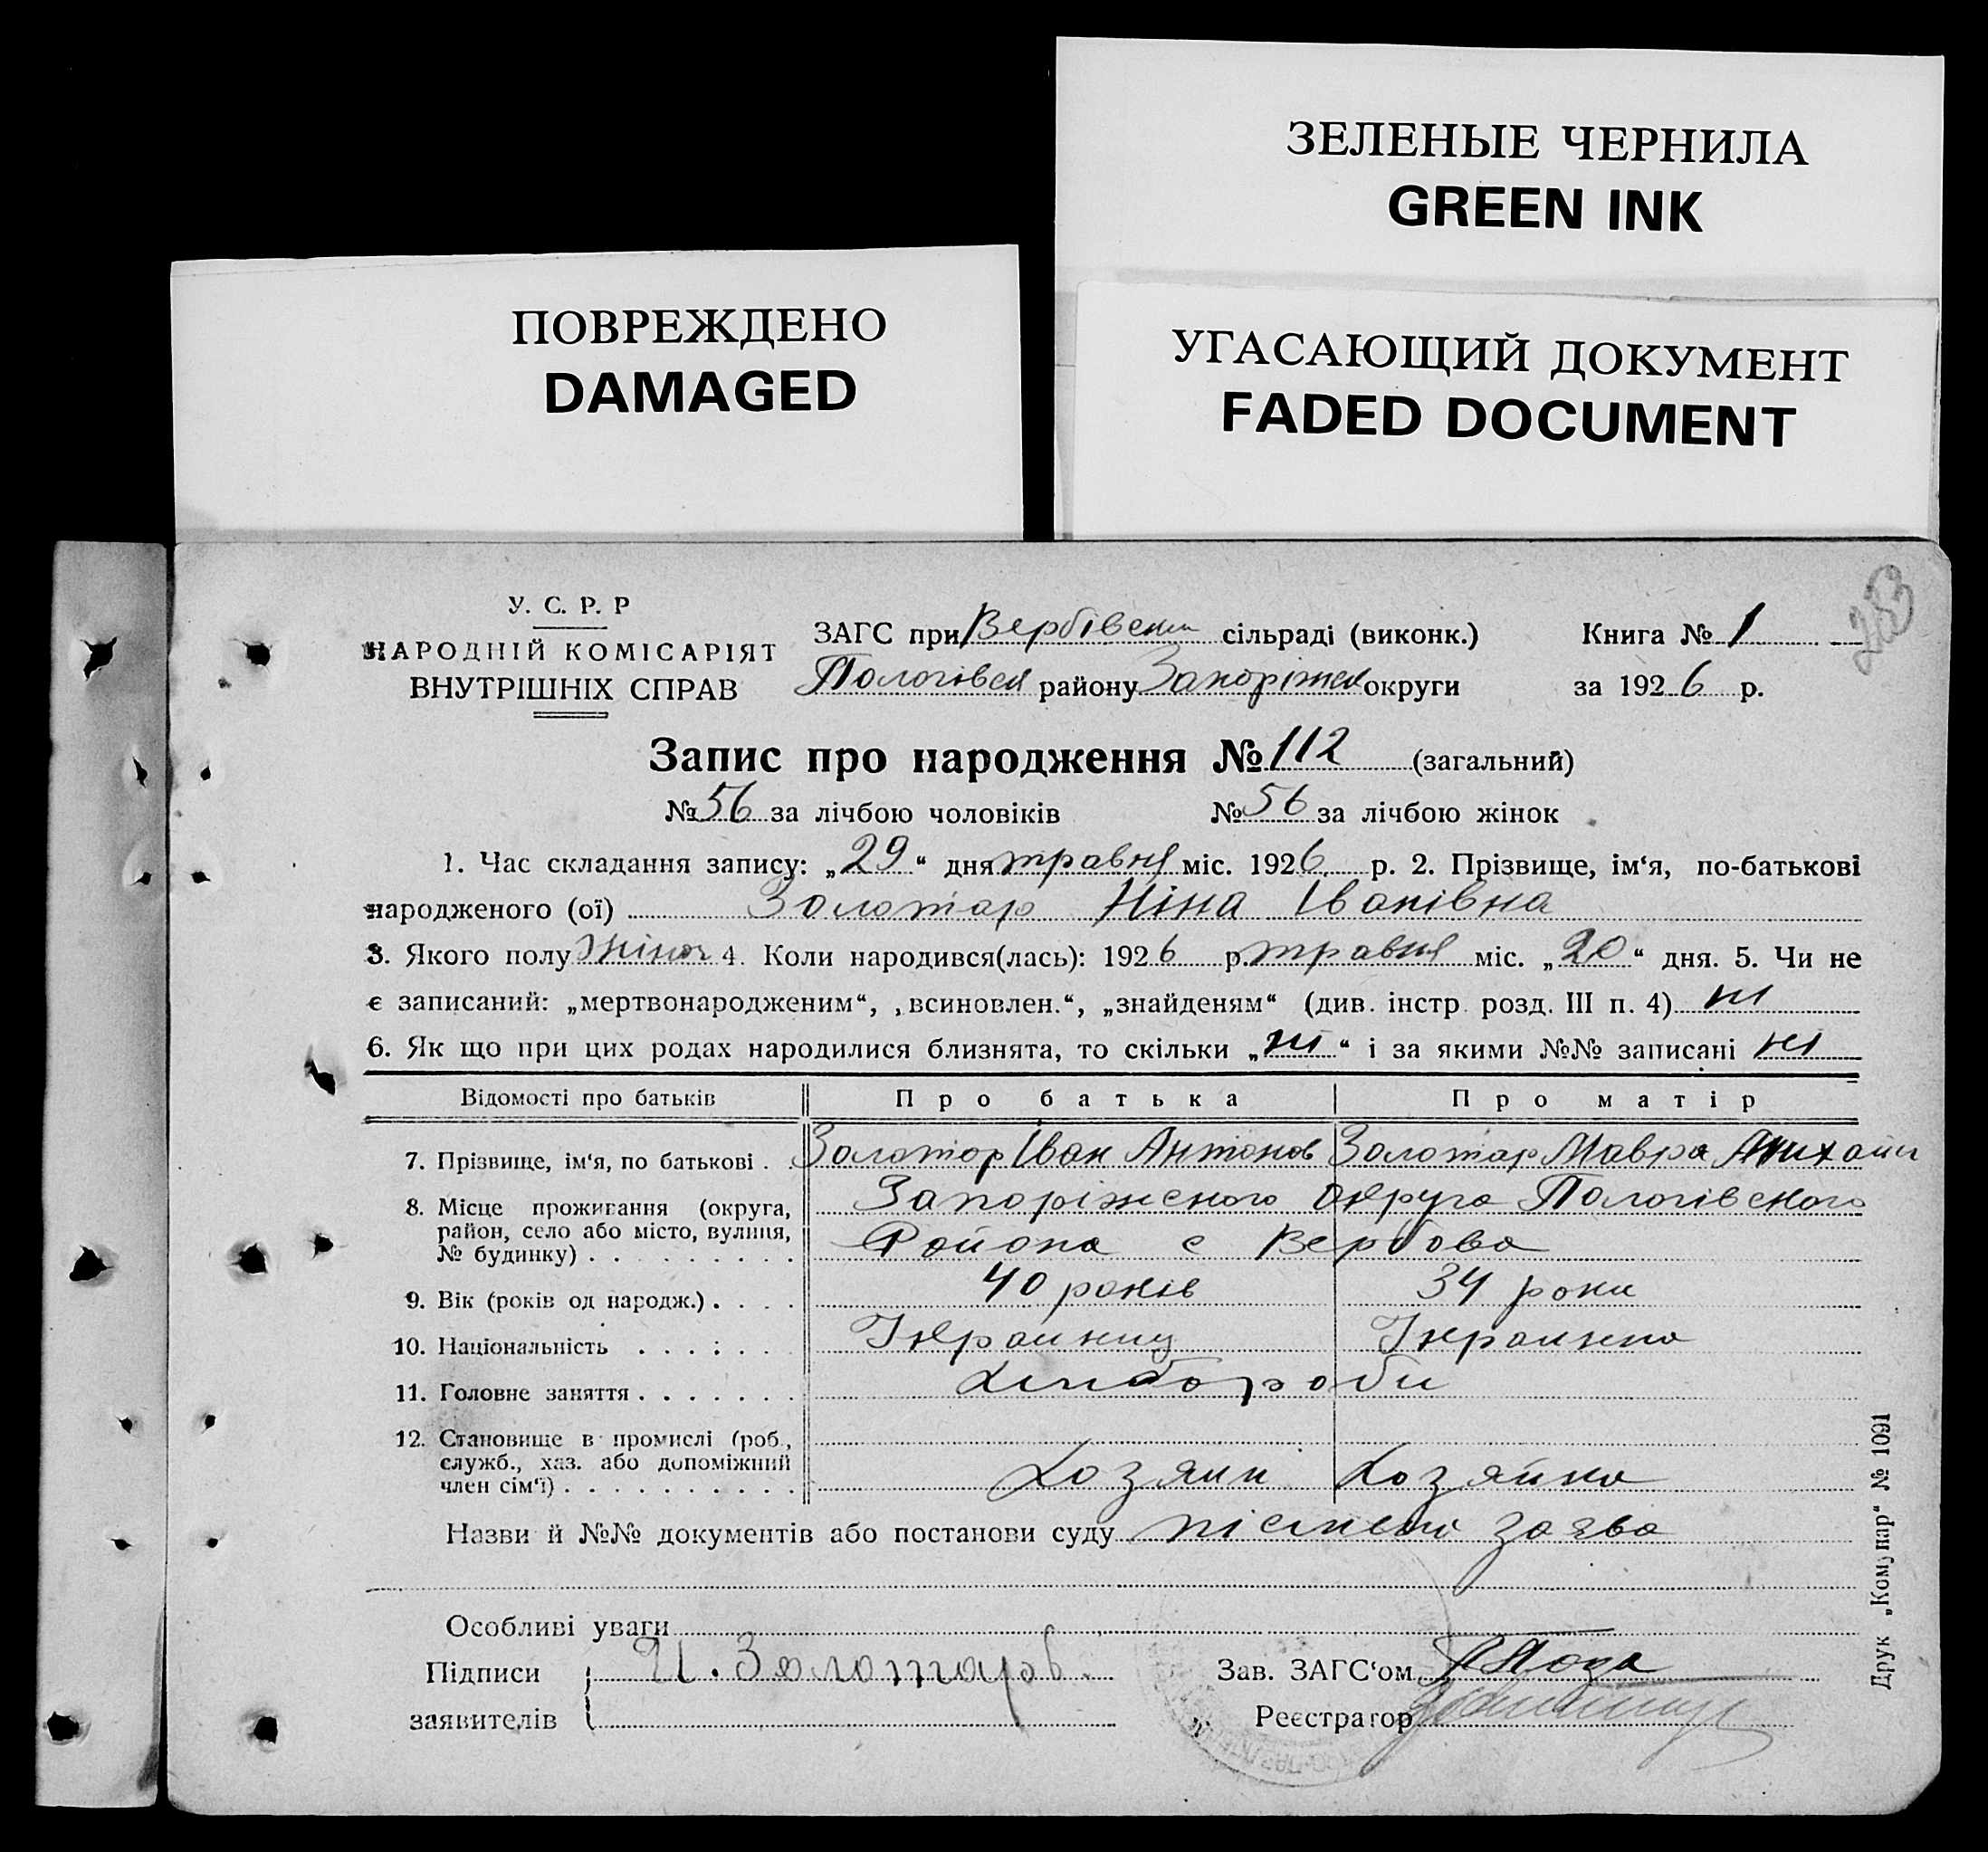 ЗЕЛЕНЫЕ ЧЕРНИЛА
GREEN INK
ПОВРЕЖДЕНО
DAMAGED
УГАСАЮЩИЙ ДОКУМЕНТ
FADED DOCUMENT
283
У. С. Р. Р
НАРОДНІЙ КОМІСАРІЯТ
ВНУТРІШНІХ СПРАВ
ЗАГС при Вербівськ сільраді (виконк.)
Пологівськ району Запоріжськ округи
Книга № 1
за 1926 р.
Запис про народження № 112 (загальний)
№ 56 за лічбою чоловіків № 56 за лічбою жінок
1. Час складання запису: „29“ дня травня міс. 1926 р. 2. Прізвище, ім‘я, по-батькові
народженого (ої) Золотар Ніна Іванівна
3. Якого полу жіноч 4. Коли народився(лась): 1926 р. травня міс. „20“ дня. 5. Чи не
є записаний: „мертвонародженим“, „всиновлен.“, „знайденям“ (див. інстр. розд. III п. 4) ні
6. Як що при цих родах народилися близнята, то скільки „ні“ і за якими №№ записані ні
Відомості про батьків Про батька Про матір
7. Прізвище, ім‘я, по батькові . . Золотор Іван Антонов Золотар Мавра Михайл
8. Місце прожигання (округа, Запоріжського округа Пологівського
район, село або місто, вулиця,
№ будинку) . . . . . . . . . Района с Вербова
9. Вік (років од народж.) . . . . 40 років 34 роки
10. Національність . . . . . . . Україниц Українка
11. Головне заняття . . . . . . . Хліборобы
12. Становище в промислі (роб.,
служб., хаз. або допоміжний
член сім‘ї) . . . . . . . . . . Хозяин Хозяйка
Назви й №№ документів або постанови суду заява
Особливі уваги
Підписи И. Золотарёв
заявителів
Зав. ЗАГС‘ом
Реєстратор
Друк „Комунар“ № 1091